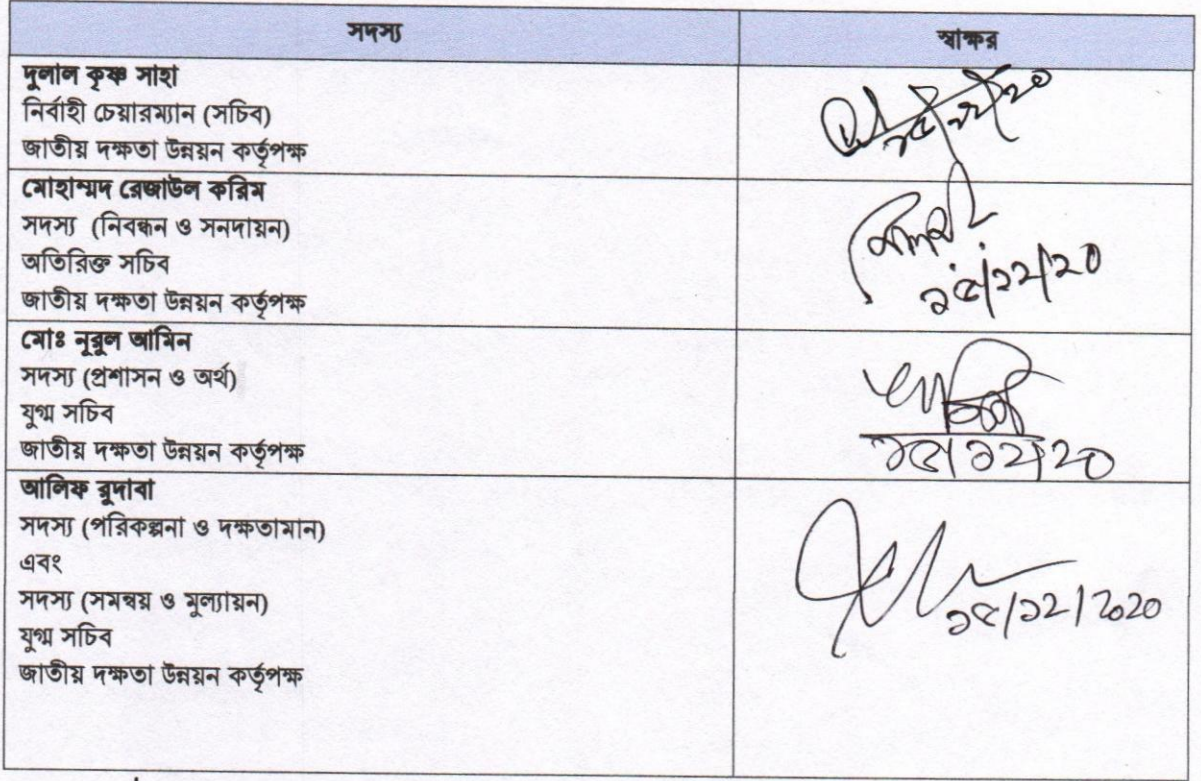 সদস্য স্বাক্ষর
দুলাল কৃষ্ণ সাহা
নির্বাহী চেয়ারম্যান (সচিব)
জাতীয় দক্ষতা উন্নয়ন কর্তৃপক্ষ
১৫/১২/২০
মোহাম্মদ রেজাউল করিম
সদস্য (নিবন্ধন ও সনদায়ন)
অতিরিক্ত সচিব
জাতীয় দক্ষতা উন্নয়ন কর্তৃপক্ষ
১৫/১২/২০
মোঃ নূরুল আমিন
সদস্য (প্রশাসন ও অর্থ)
যুগ্ম সচিব
জাতীয় দক্ষতা উন্নয়ন কর্তৃপক্ষ
১৫/১২/২০
আলিফ রুদাবা
সদস্য (পরিকল্পনা ও দক্ষতামান)
এবং
সদস্য (সমন্বয় ও মুল্যায়ন)
যুগ্ম সচিব
জাতীয় দক্ষতা উন্নয়ন কর্তৃপক্ষ
১৫/১২/২০২০